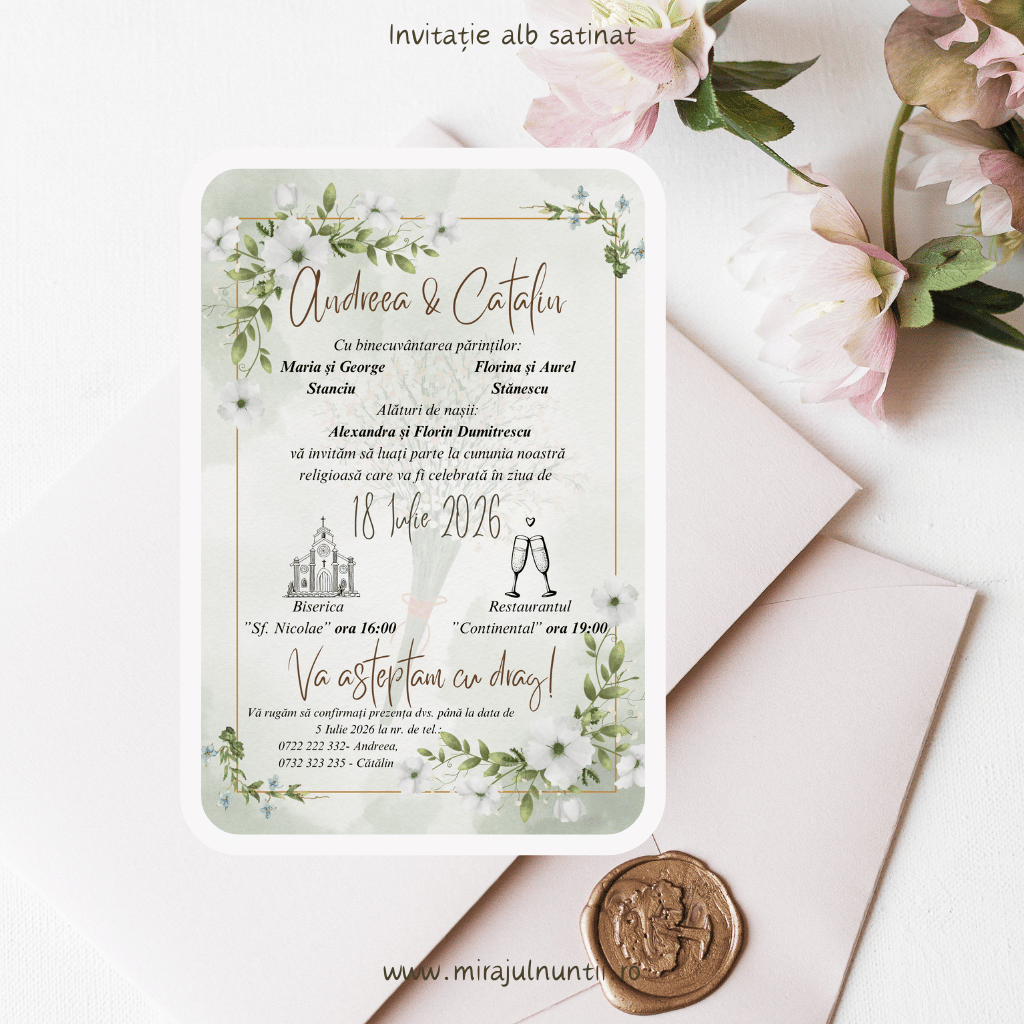 Invitație alb satinat
Andreea & Catalin
Cu binecuvântarea părinților:
Maria și George Stanciu
Florina și Aurel Stănescu
Alături de nașii:
Alexandra și Florin Dumitrescu
vă invităm să luați parte la cununia noastră
religioasă care va fi celebrată în ziua de
18 Iulie 2026
Biserica
"Sf. Nicolae" ora 16:00
Restaurantul
"Continental" ora 19:00
Va asteptam cu drag!
Vă rugăm să confirmați prezența dvs. până la data de
5 Iulie 2026 la nr. de tel.:
0722 222 332- Andreea,
0732 323 235 - Cătălin
www.mirajulnuntii.ro